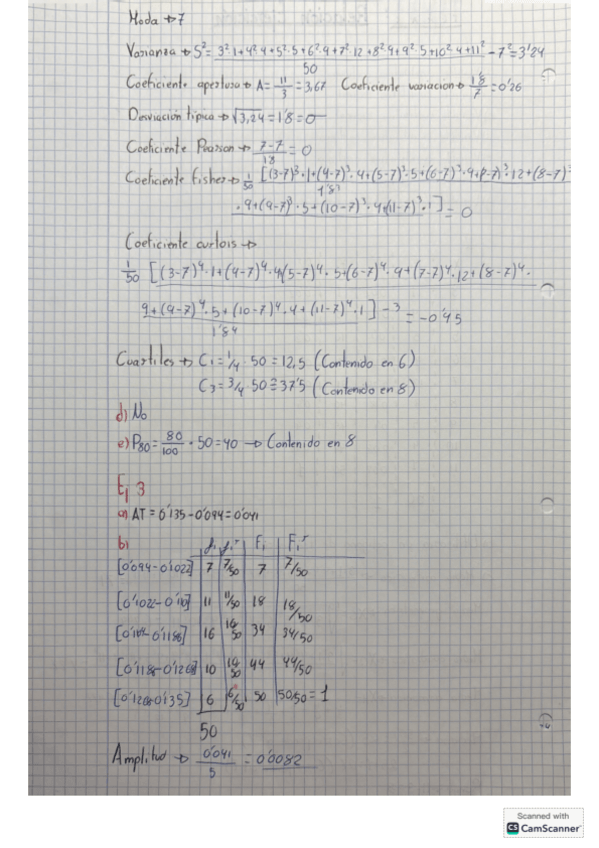 Moda → 7
Varianza → S² = 3²·1+4²·4+5²·5+6²·9+7²·12+8²·9+9²·5+10²·4+11² / 50 - 7² = 3'24
Coeficiente apertura → A = 11/3 = 3,67 Coeficiente variacion → 1'8/7 = 0'26
Desviación típica → √3,24 = 1'8 = σ
Coeficiente Pearson → 7-7/1'8 = 0
Coeficiente fisher → 1/50 [(3-7)³·1+(4-7)³·4+(5-7)³·5+(6-7)³·9+(7-7)³·12+(8-7)³
·9+(9-7)³·5+(10-7)³·4+(11-7)³·1] / 1'8³ = 0
Coeficiente curtois →
1/50 [(3-7)⁴·1+(4-7)⁴·4(5-7)⁴·5+(6-7)⁴·9+(7-7)⁴·12+(8-7)⁴·
9+(9-7)⁴·5+(10-7)⁴·4+(11-7)⁴·1] / 1'8⁴ - 3 = -0'45
Cuartiles → C₁ = 1/4 · 50 = 12,5 (Contenido en 6)
C₃ = 3/4 · 50 = 37'5 (Contenido en 8)
d) No
e) P₈₀ = 80/100 · 50 = 40 → Contenido en 8
Ej 3
a) AT = 0'135-0'094 = 0'041
b) fi fir Fi Fir
[0'094-0'1022] 7 7/50 7 7/50
[0'1022-0'110] 11 11/50 18 18/50
16 16/50 34 34/50
10 10/50 44 44/50
6 6/50 50 50/50 = 1
50
Amplitud → 0'041/5 = 0'0082
Scanned with
CS CamScanner